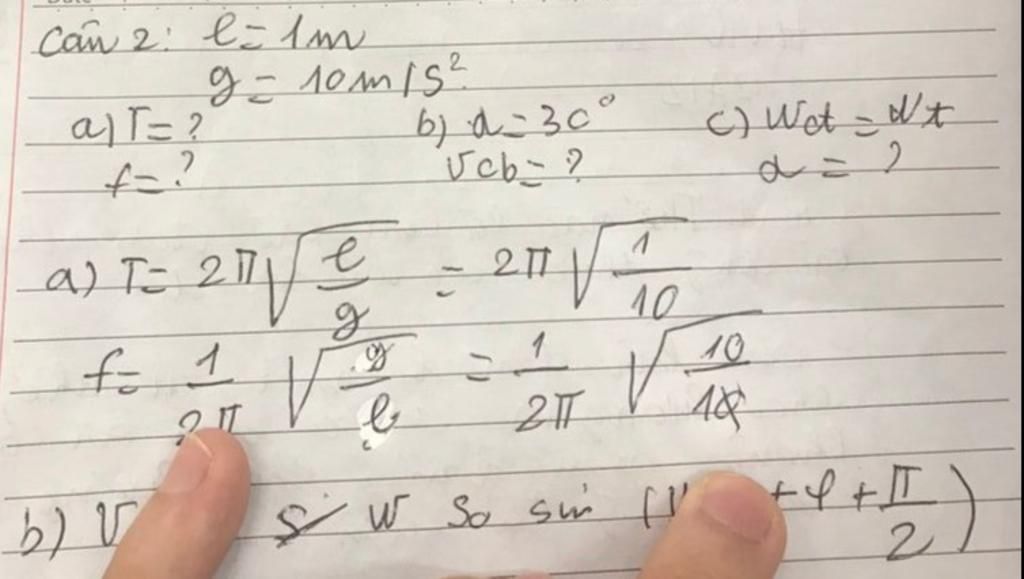 Câu 2: l = 1m
g = 10m/s².
a) T = ? b) α = 30° c) Wđ = Wt
f = ? Vcb = ? α = ?
a) T = 2π√(l/g) = 2π√(1/10)
f = 1/2π √(g/l) = 1/2π √(10/1)
b) V W So sin ( + φ + π/2)